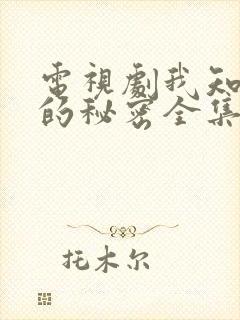 電視劇我知
的秘密全集
托木尔